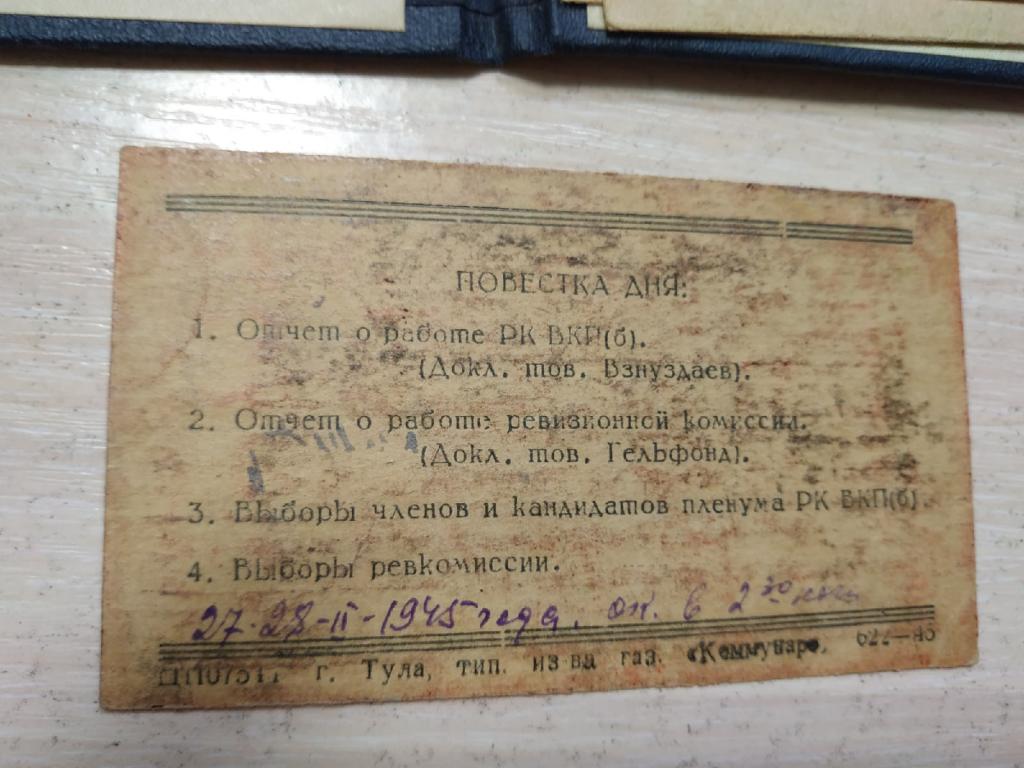 ПОВЕСТКА ДНЯ:
1. Отчет о работе РК ВКП(б).
(Докл. тов. Взнуздаев).
2. Отчет о работе ревизионной комиссии.
(Докл. тов. Гельфонд).
3. Выборы членов и кандидатов пленума РК ВКП(б).
4. Выборы ревкомиссии.
27-28-II-1945 года. ок. в 2 30 ночи
г. Тула, тип. из-ва газ. «Коммунар». 622—45